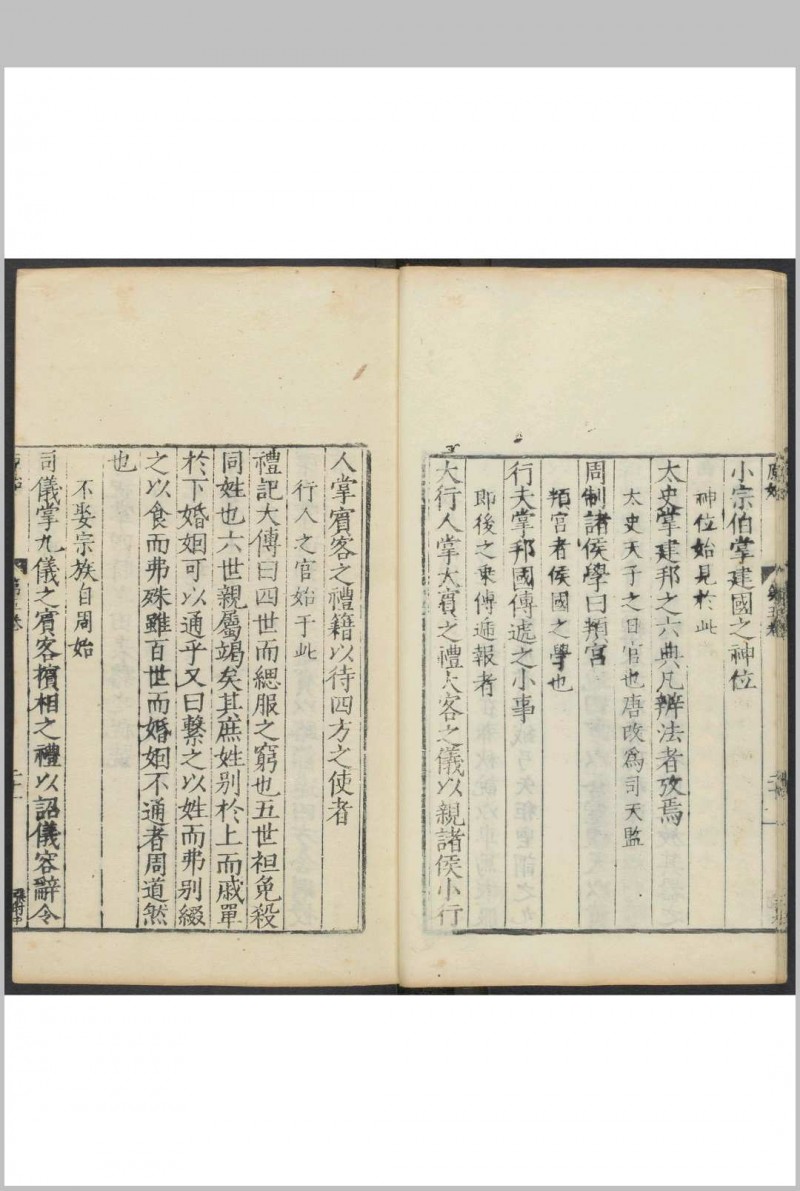 小宗伯掌建國之神位
神位始見於此
太史掌建邦之六典凡辨法者攷焉
太史天子之日官也唐改為司天監
周制諸侯學曰頖宮
頖宮者侯國之學也
行夫掌邦國傳遞之小事
即後之乗傳遞報者
大行人掌大賓之禮大客之儀以親諸侯小行
人掌賓客之禮籍以待四方之使者
行人之官始于此
禮記大傳曰四世而緦服之窮也五世袒免殺
同姓也六世親屬竭矣其庶姓別於上而戚單
於下婚姻可以通乎又曰繫之以姓而弗別綴
之以食而弗殊雖百世而婚姻不通者周道然
也
不娶宗族自周始
司儀掌九儀之賓客擯相之禮以詔儀容辭令